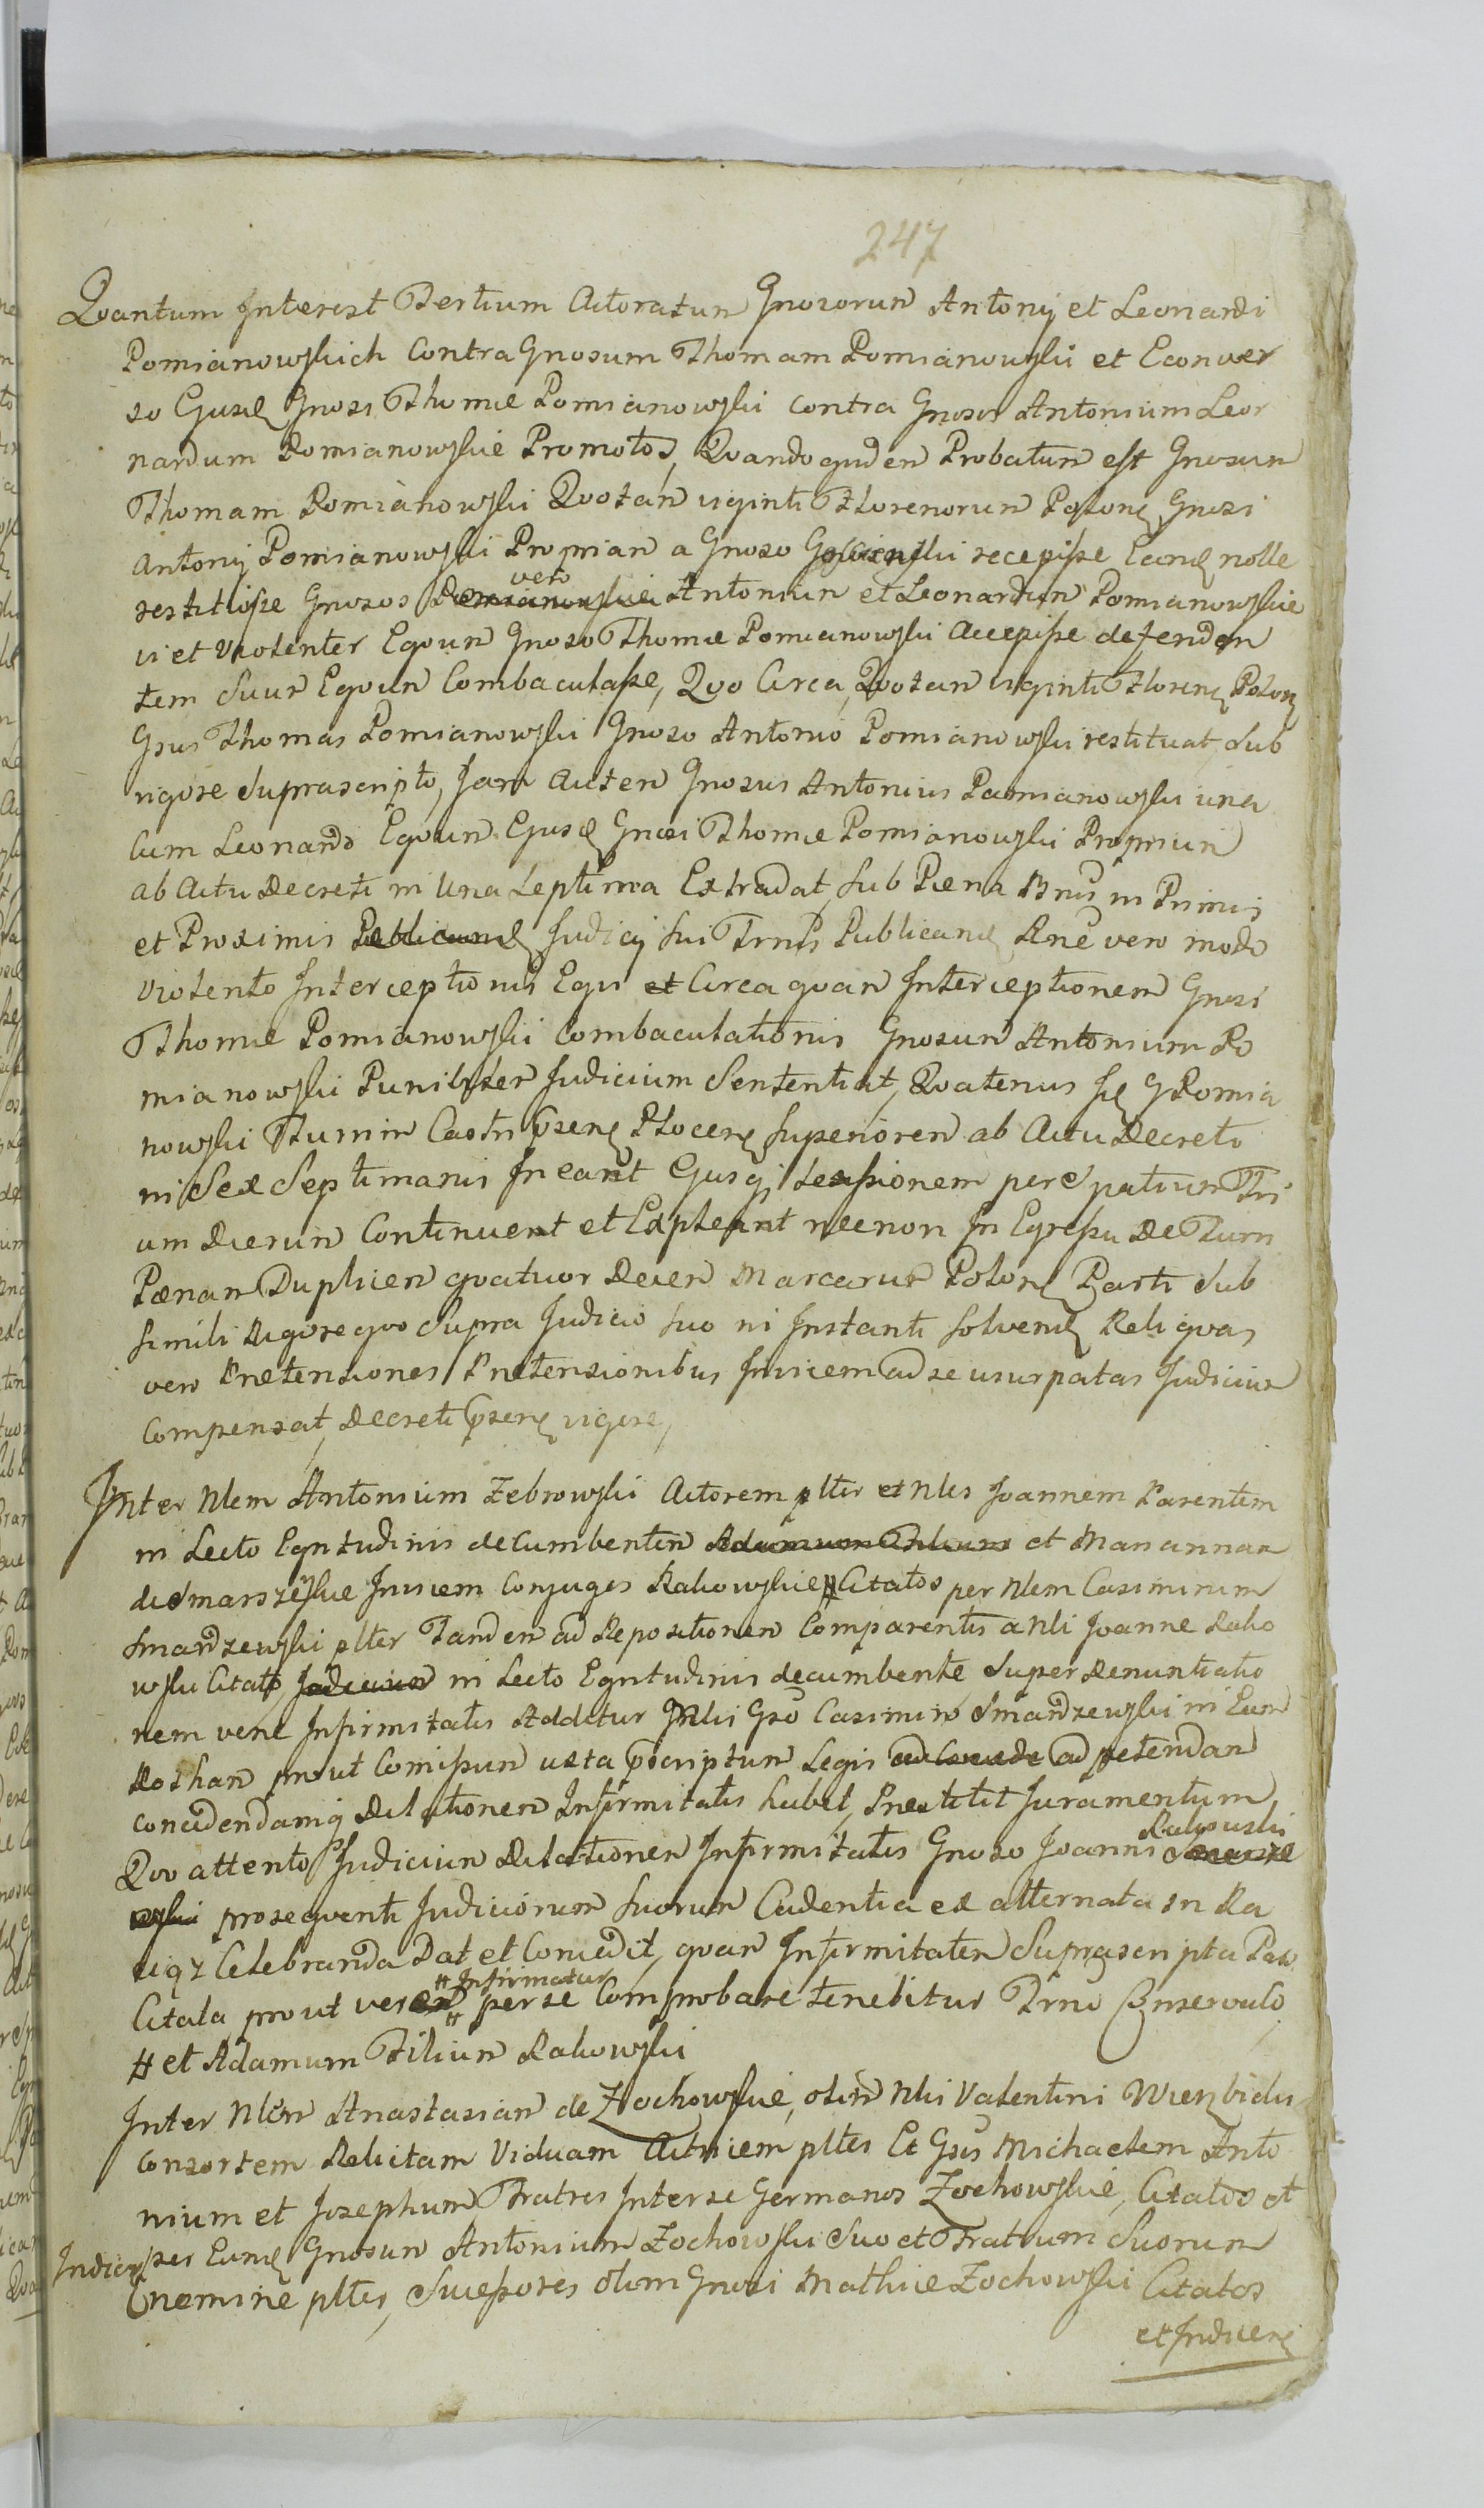 247
Quantum Interest Tertium Actoratum Gnosorum Antonij et Leonardi
Pomianowskich Contra Gnosum Thomam Pomianowski et Econver
so Ejusd Gnosi Thomæ Pomianowski Contra Gnosos Antonium Leo
nardum Pomianowskie Promotos, Quandoquidem Probatum est Gnosum
Thomam Pomianowski Quotam viginti Florenorum Polon Gnosi
Antonij Pomianowski Propriam a Gnoso recepisse Eand nolle
restituisse Gnosos vero Antonium et Leonardum Pomianowskie
vi et Violenter Equum Gnoso Thomæ Pomianowski Accepisse defenden
tem suum Equum Combaculasse, Quo Circa, Quotam viginti Floren Polon
Gsus Thomas Pomianowski Gnoso Antonio Pomianowski restituat, sub
rigore suprascripto, Jam Autem Gnosus Antonius Pomianowski una
cum Leonardo Equum Ejusd Gnosi Thomæ Pomianowski Proprium
ab Actu Decreti in Una Septima Extradat, sub Pæna Bnis in Primis
et Proximis Publicand Judicij sui Trnis Publicand Rne vero modo
violento Interceptionis Equi et Circa quam Interceptionem Gnosi
Thomæ Pomianowski Combaculationis Gnosum Antonium Po
mianowski Punibiliter Judicium Sententiat, Quatenus G Pomia
nowski Turrim Castri Plocen Superiorem ab Actu Decreti
in Sex Septimanis Ineant Ejusq Sessionem per Spatium Tri
um Dierum Continuent et Expleant necnon In Egressu De Turri
Pænam Duplicem quatuor Decem Marcarum Polon Parti Sub
simili Rigore quo Supra Judicio suo in Instanti Solvend Reliquas
vero Prætensiones Prætensionibus Invicem ad se usurpatas Judicium
Compensat, Decreti vigore,
Inter Nlem Antonium Zebrowski Actorem plter et Nles Joannem Parentem
in Lecto Egritudinis decumbentem Adamum Filium et Mariannam
de Smarzewskie Invicem Conjuges Rakowskie # Citatos per Nlem Casimirum
Smardzewski plter Tandem ad Repositionem Comparentis a Nli Joanne Rako
wski Citato, Judicium in Lecto Egritudinis decumbente Super Denuntiatio
nem veræ Infirmitatis Additur Gso Casimiro Smardzewski in Eum
prout Comissum uxta pscriptum Legis ad petendam
concedendamq Dilationem Infirmitatis habet, Præstitit Juramentum,
Quo attento Judicium Dilationem Infirmitatis Gnoso Joanni Rakowski
wski prosequenti Judiciorum suorum Cadentia ex alternata in Ra
Celebranda Dat et Concedit, quam Infirmitatem Suprascripta Pars
Citata prout vere # Infirmatur # per se Comprobare tenebitur Trno Conservato
# et Adamum Filium Rakowski
Inter Nlem Anastasiam de Zochowskie, olim Nli Valentini Wierzbicki
Consortem Relictam Viduam Actricem plter Et Gsos Michaelem Anto
nium et Josephum Fratres Inter se Germanos Zochowskie, Citatos et
Inducen per Eund Gnosum Antonium Zochowski Suo et Fratrum Suorum
nomine plter, Sucessores olim Gnosi Mathiæ Zochowski Citatos
et Inducen